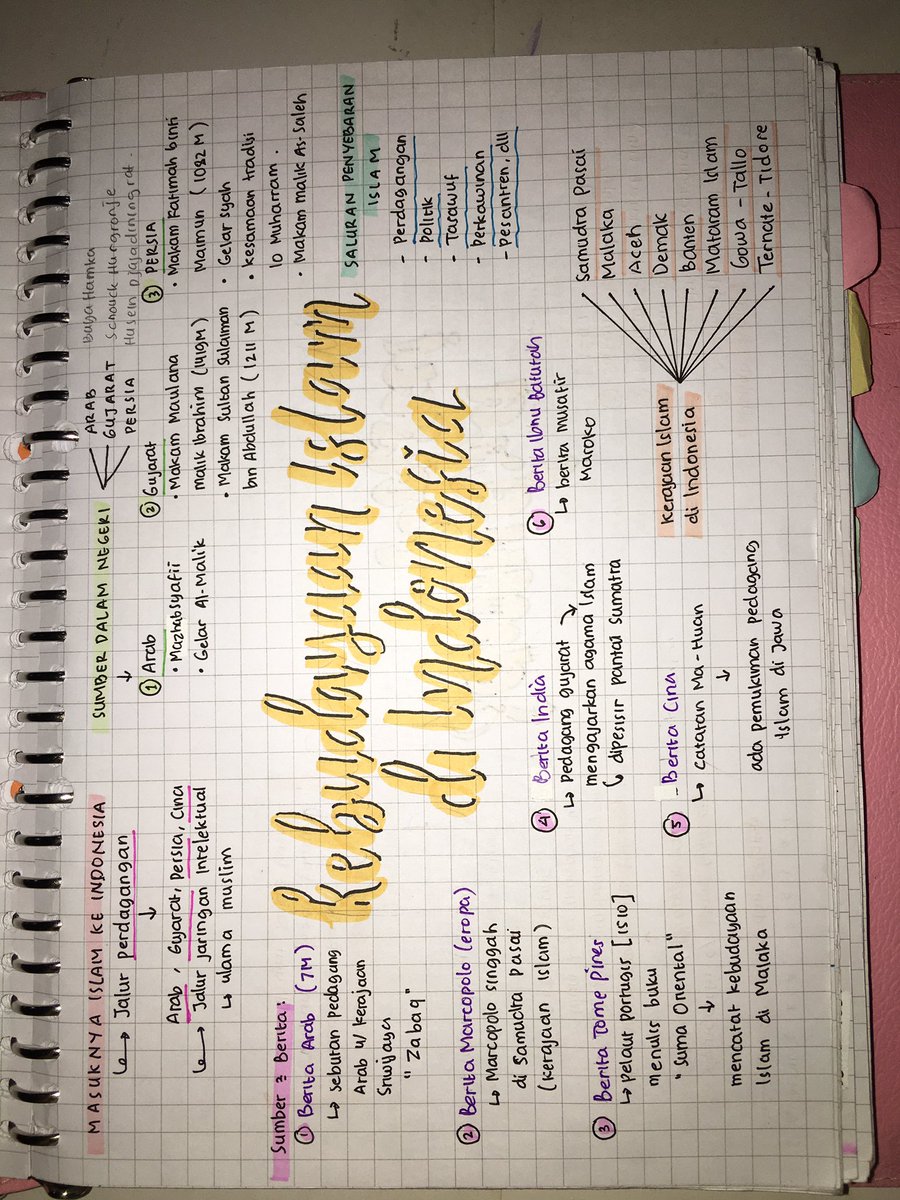 MASUKNYA ISLAM KE INDONESIA
↳ Jalur perdagangan
↓
Arab, Gujarat, Persia, Cina
↳ Jalur jaringan intelektual
↳ ulama muslim
SUMBER DALAM NEGERI
ARAB Buya Hamka
GUJARAT Schouck Hungronje
PERSIA Husein Djajadiningrat.
↓
① Arab
• Mazhab syafii
• Gelar Al-Malik
② Gujarat
• Makam Maulana
malik Ibrahim (1419M)
• Makam Sultan Sulaiman
bin Abdullah (1211 M)
③ PERSIA
• Makam Fatimah binti
Maimun (1082 M)
• Gelar syah
• kesamaan tradisi
10 Muharram.
• Makam malik As-Saleh
Kebudayaan Islam
di Indonesia
Sumber² Berita:
① Berita Arab (7M)
↳ sebutan pedagang
Arab w/ kerajaan
Sriwijaya
"Zabaq"
② Berita Marcopolo (eropa)
↳ Marcopolo singgah
di Samudra Pasai
(kerajaan islam)
③ Berita Tome Pires
↳ pelaut portugis [1510]
menulis buku
"Suma Oriental"
↓
mencatat kebudayaan
Islam di Malaka
④ Berita India
↳ pedagang gujarat
mengajarkan agama Islam
dipesisir pantai sumatra
⑤ - Berita Cina
↳ catatan Ma-Huan
↓
ada pemukiman pedagang
Islam di Jawa
⑥ Berita Ibnu Batutah
↳ berita musafir
Maroko
SALURAN PENYEBARAN
ISLAM
- Perdagangan
- Politik
- Tasawuf
- perkawinan
- pesantren, dll
kerajaan Islam
di Indonesia
Samudra pasai
Malaka
Aceh
Demak
Banten
Mataram Islam
Gowa - Tallo
Ternate - Tidore